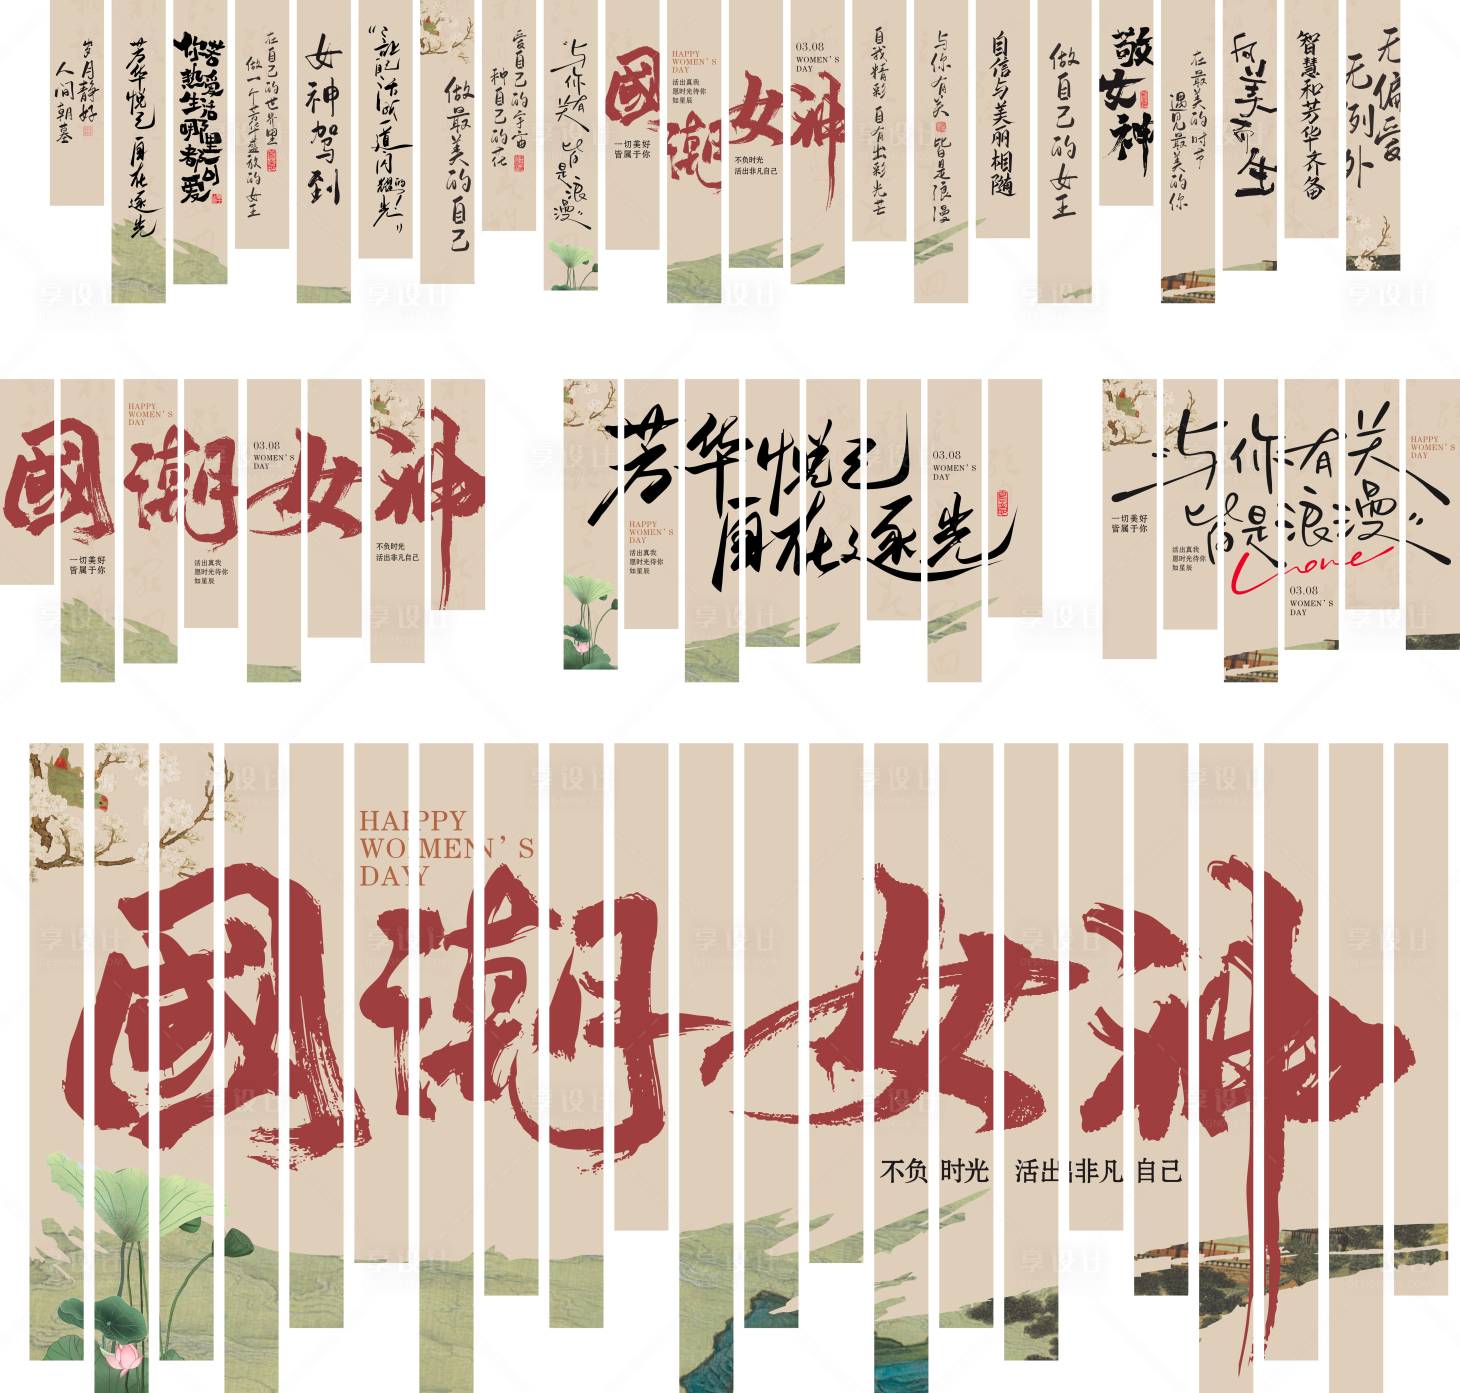 岁月静好
人间朝暮
芳华悦己 自在逐光
你若爱
热爱生活
哪里都可爱
在自己的世界里
做一个幸华盛放的女王
女神驾到
“让自己活成
一道闪耀的光！”
做最美的自己
爱自己的宇宙
种自己的花
“与你有关
皆是浪漫”
國潮女神
一切美好
皆属于你
HAPPY
WOMEN’S
DAY
活出真我
愿时光待你
如星辰
不负时光
活出非凡自己
03.08
WOMEN’S
DAY
自我精彩 自有出彩光芒
与你有关 皆是浪漫
自信与美丽相随
做自己的女王
敬女神
在最美的时节
遇见最美的你
向美而生
智慧和芳华齐备
无偏爱
无列外
國潮女神
HAPPY
WOMEN’S
DAY
03.08
WOMEN’S
DAY
一切美好
皆属于你
活出真我
愿时光待你
如星辰
不负时光
活出非凡自己
芳华悦己
自在逐光
03.08
WOMEN’S
DAY
HAPPY
WOMEN’S
DAY
活出真我
愿时光待你
如星辰
“与你有关
皆是浪漫”
HAPPY
WOMEN’S
DAY
一切美好
皆属于你
活出真我
愿时光待你
如星辰
03.08
WOMEN’S
DAY
HAPPY
WOMEN’S
DAY
國潮女神
不负时光 活出非凡自己